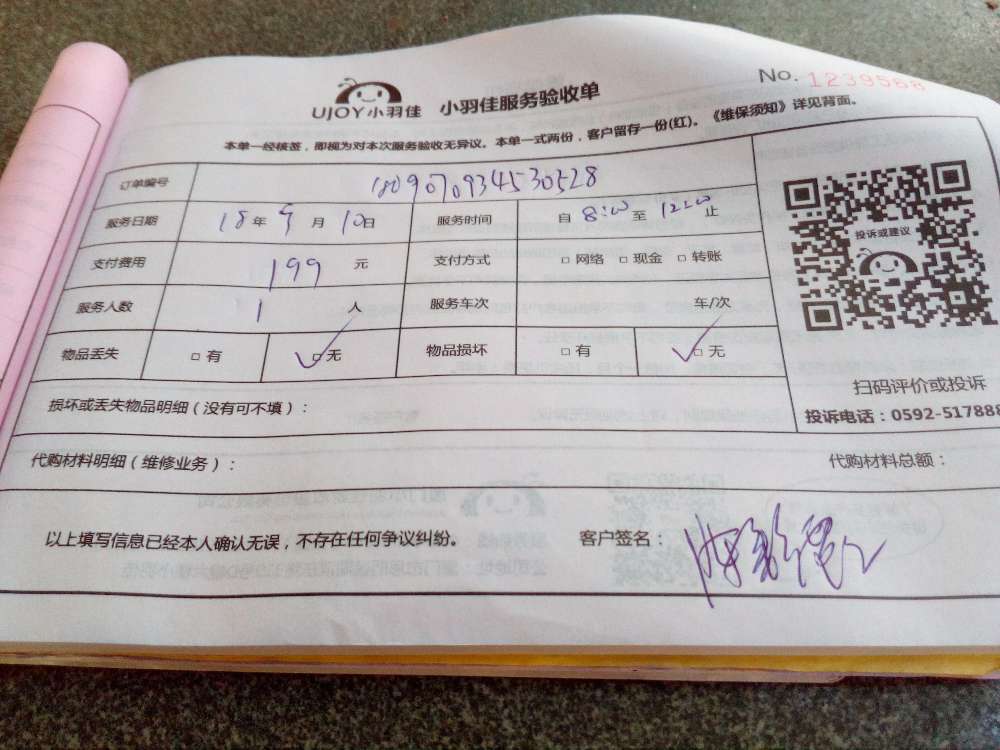 No. 1239568
UJOY小羽佳 小羽佳服务验收单
本单一经核签，即视为对本次服务验收无异议。本单一式两份，客户留存一份(红)。《维保须知》详见背面。
订单编号 180907093453​0528
服务日期 18年9月10日 服务时间 自8:00至12:00止
支付费用 199元 支付方式 □网络 □现金 □转账
服务人数 1人 服务车次 车/次
物品丢失 □有 ✓□无 物品损坏 □有 ✓□无
投诉或建议
扫码评价或投诉
投诉电话：0592-517888
损坏或丢失物品明细（没有可不填）：
代购材料明细（维修业务）： 代购材料总额：
以上填写信息已经本人确认无误，不存在任何争议纠纷。 客户签名：